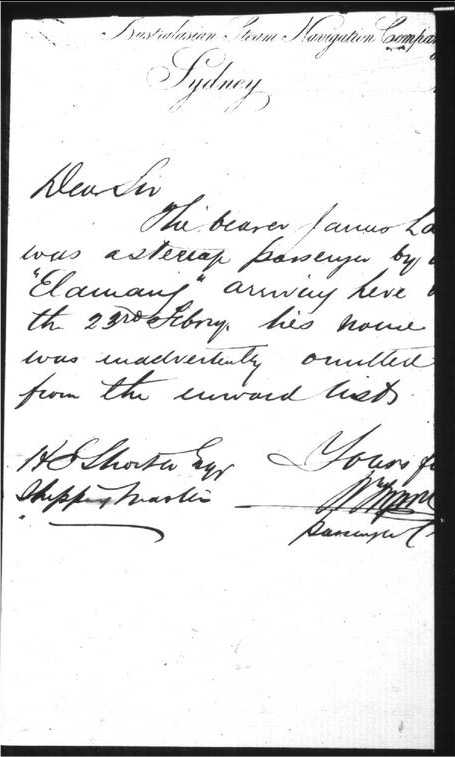 Australasian Steam Navigation Compa
Sydney
Dear Sir
The bearer James La
was a steerage passenger by
"Elamang" arriving here
the 23rd Febry. his name
was inadvertently omitted
from the inward list
H S Shorter Esqr
Shipping Master
Yours f
Passenger